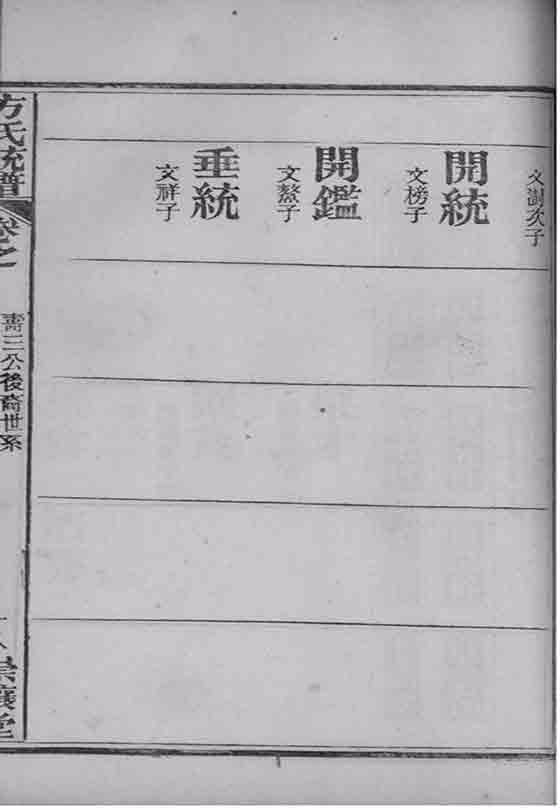 文澍次子
開統
文榜子
開鑑
文鰲子
垂統
文祥子
方氏統譜
卷之
壽三公後裔世系